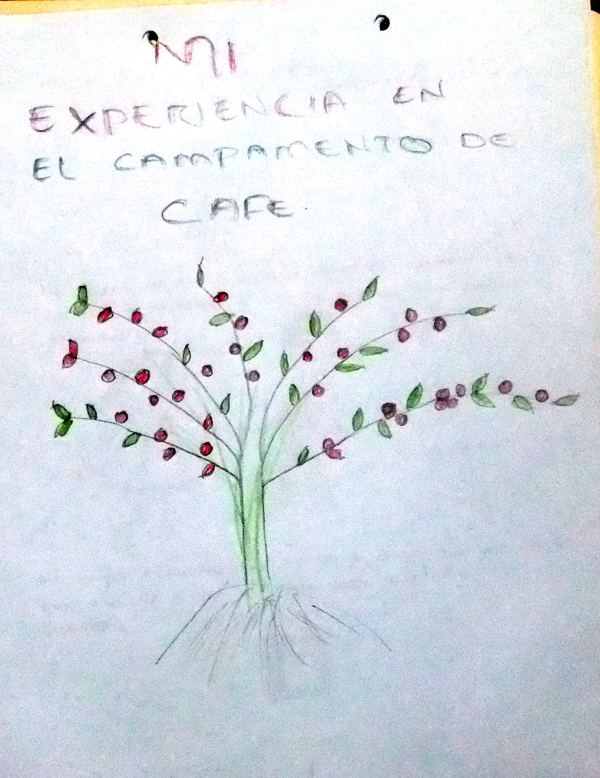 MI
EXPERIENCIA EN
EL CAMPAMENTO DE
CAFE.